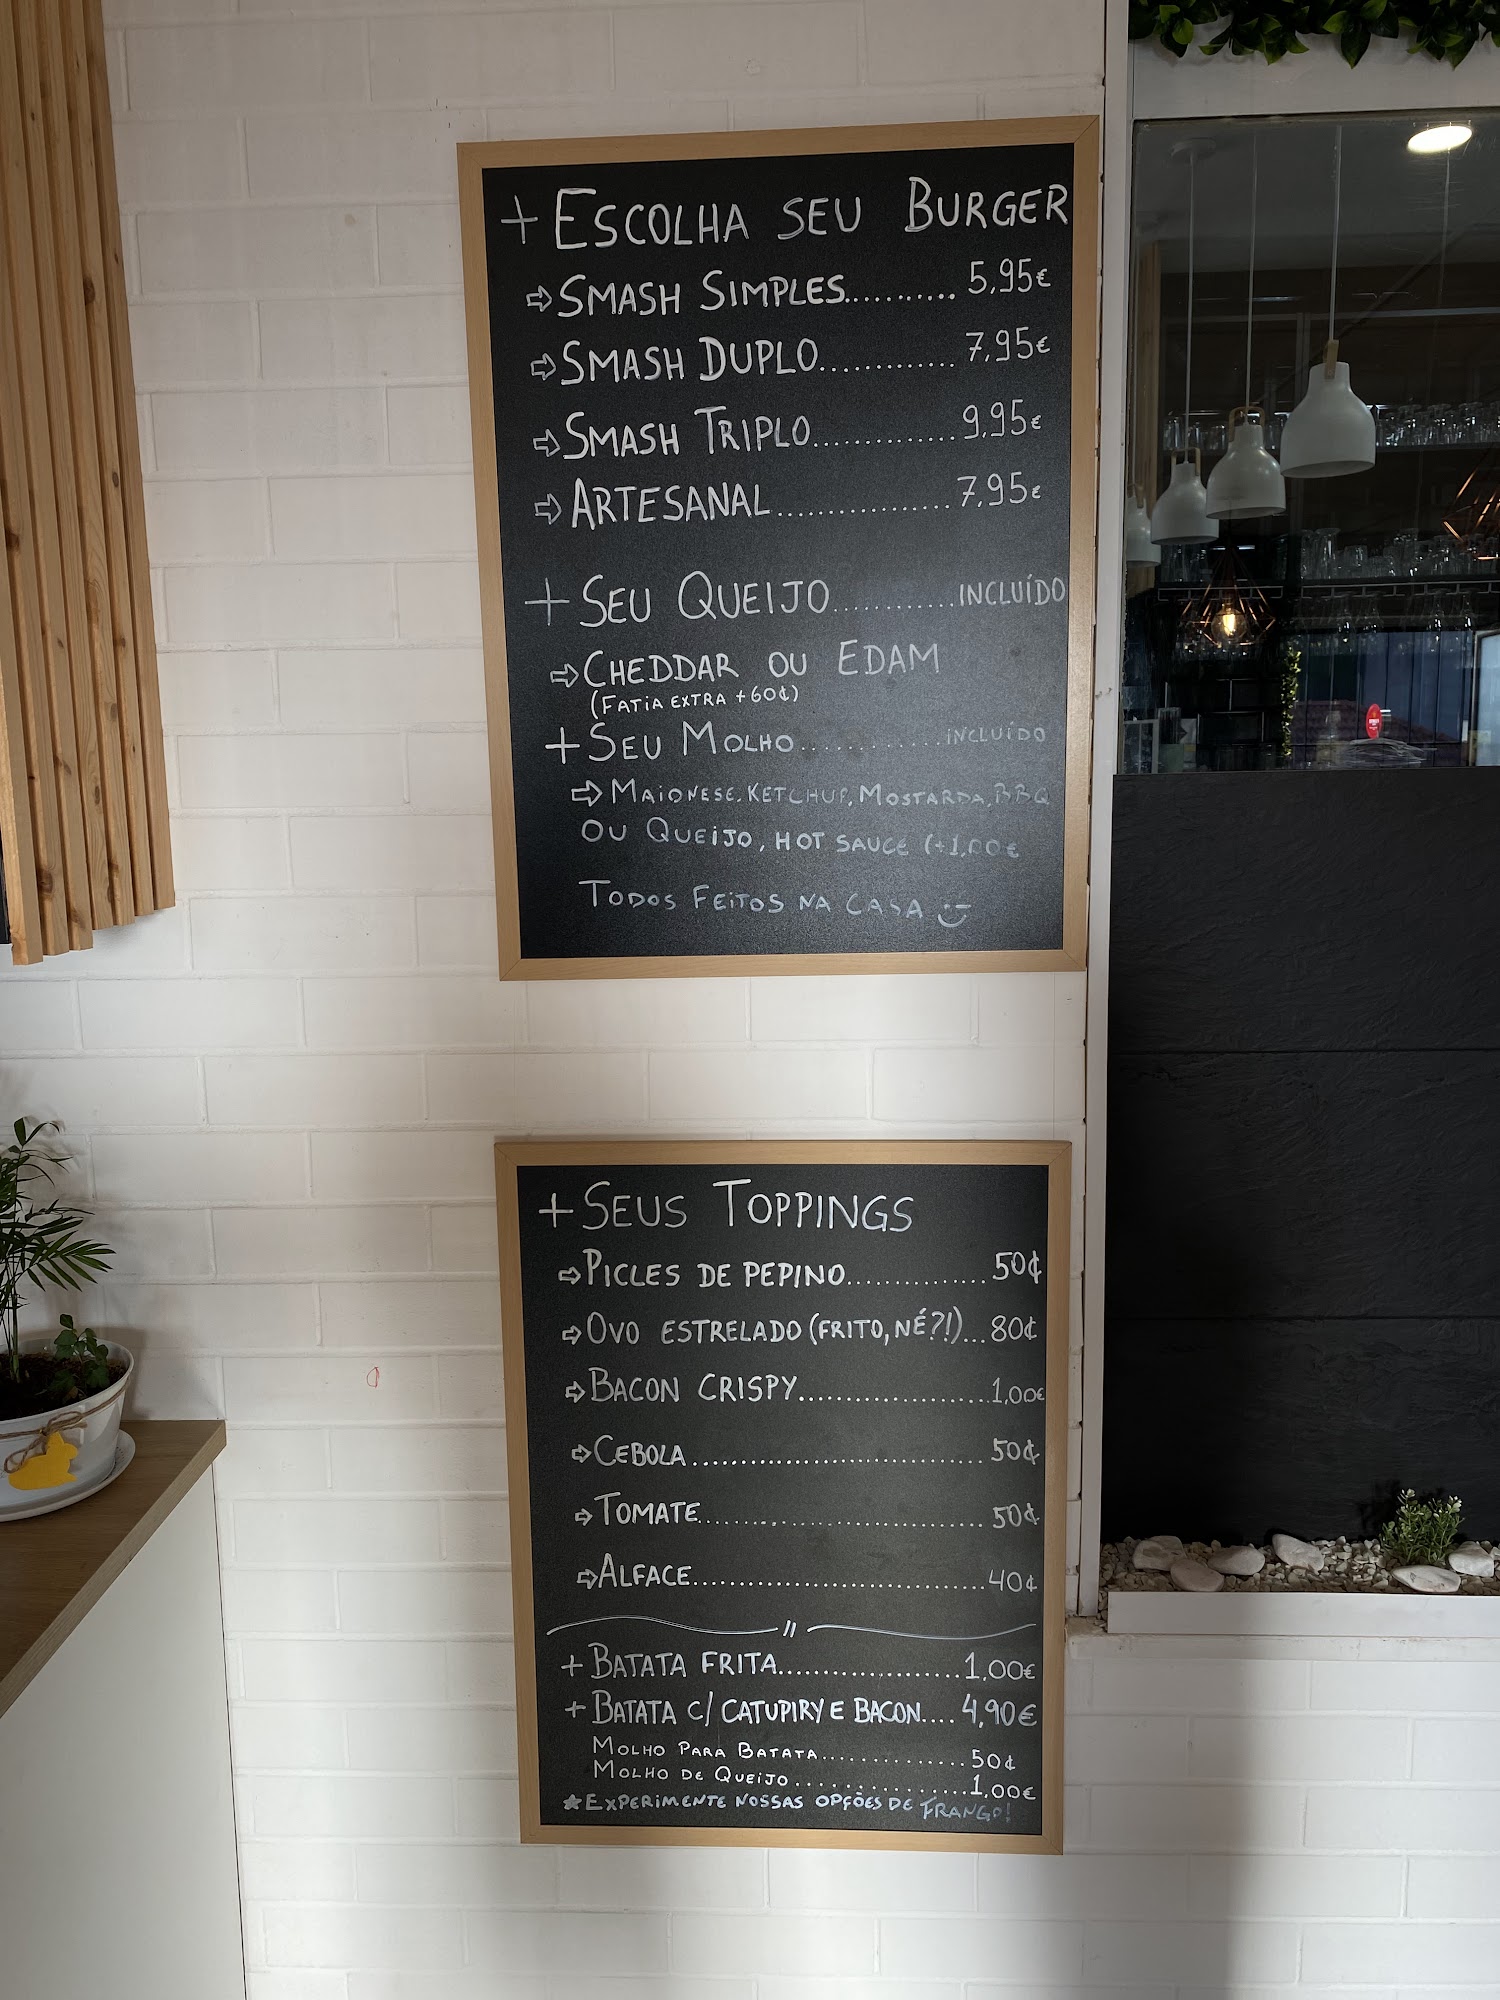 + ESCOLHA SEU BURGER
⇨ SMASH SIMPLES........... 5,95€
⇨ SMASH DUPLO............. 7,95€
⇨ SMASH TRIPLO.............. 9,95€
⇨ ARTESANAL................. 7,95€
+ SEU QUEIJO............ INCLUÍDO
⇨ CHEDDAR OU EDAM
(FATIA EXTRA +60¢)
+ SEU MOLHO............. INCLUÍDO
⇨ MAIONESE, KETCHUP, MOSTARDA, BBQ
OU QUEIJO, HOT SAUCE (+1,00€
TODOS FEITOS NA CASA
+ SEUS TOPPINGS
⇨ PICLES DE PEPINO............... 50¢
⇨ OVO ESTRELADO (FRITO, NÉ?!)... 80¢
⇨ BACON CRISPY.................... 1,00€
⇨ CEBOLA................................ 50¢
⇨ TOMATE............................... 50¢
⇨ ALFACE................................ 40¢
+ BATATA FRITA.................... 1,00€
+ BATATA C/ CATUPIRY E BACON.... 4,90€
MOLHO PARA BATATA............... 50¢
MOLHO DE QUEIJO.................. 1,00€
★ EXPERIMENTE NOSSAS OPÇÕES DE FRANGO!